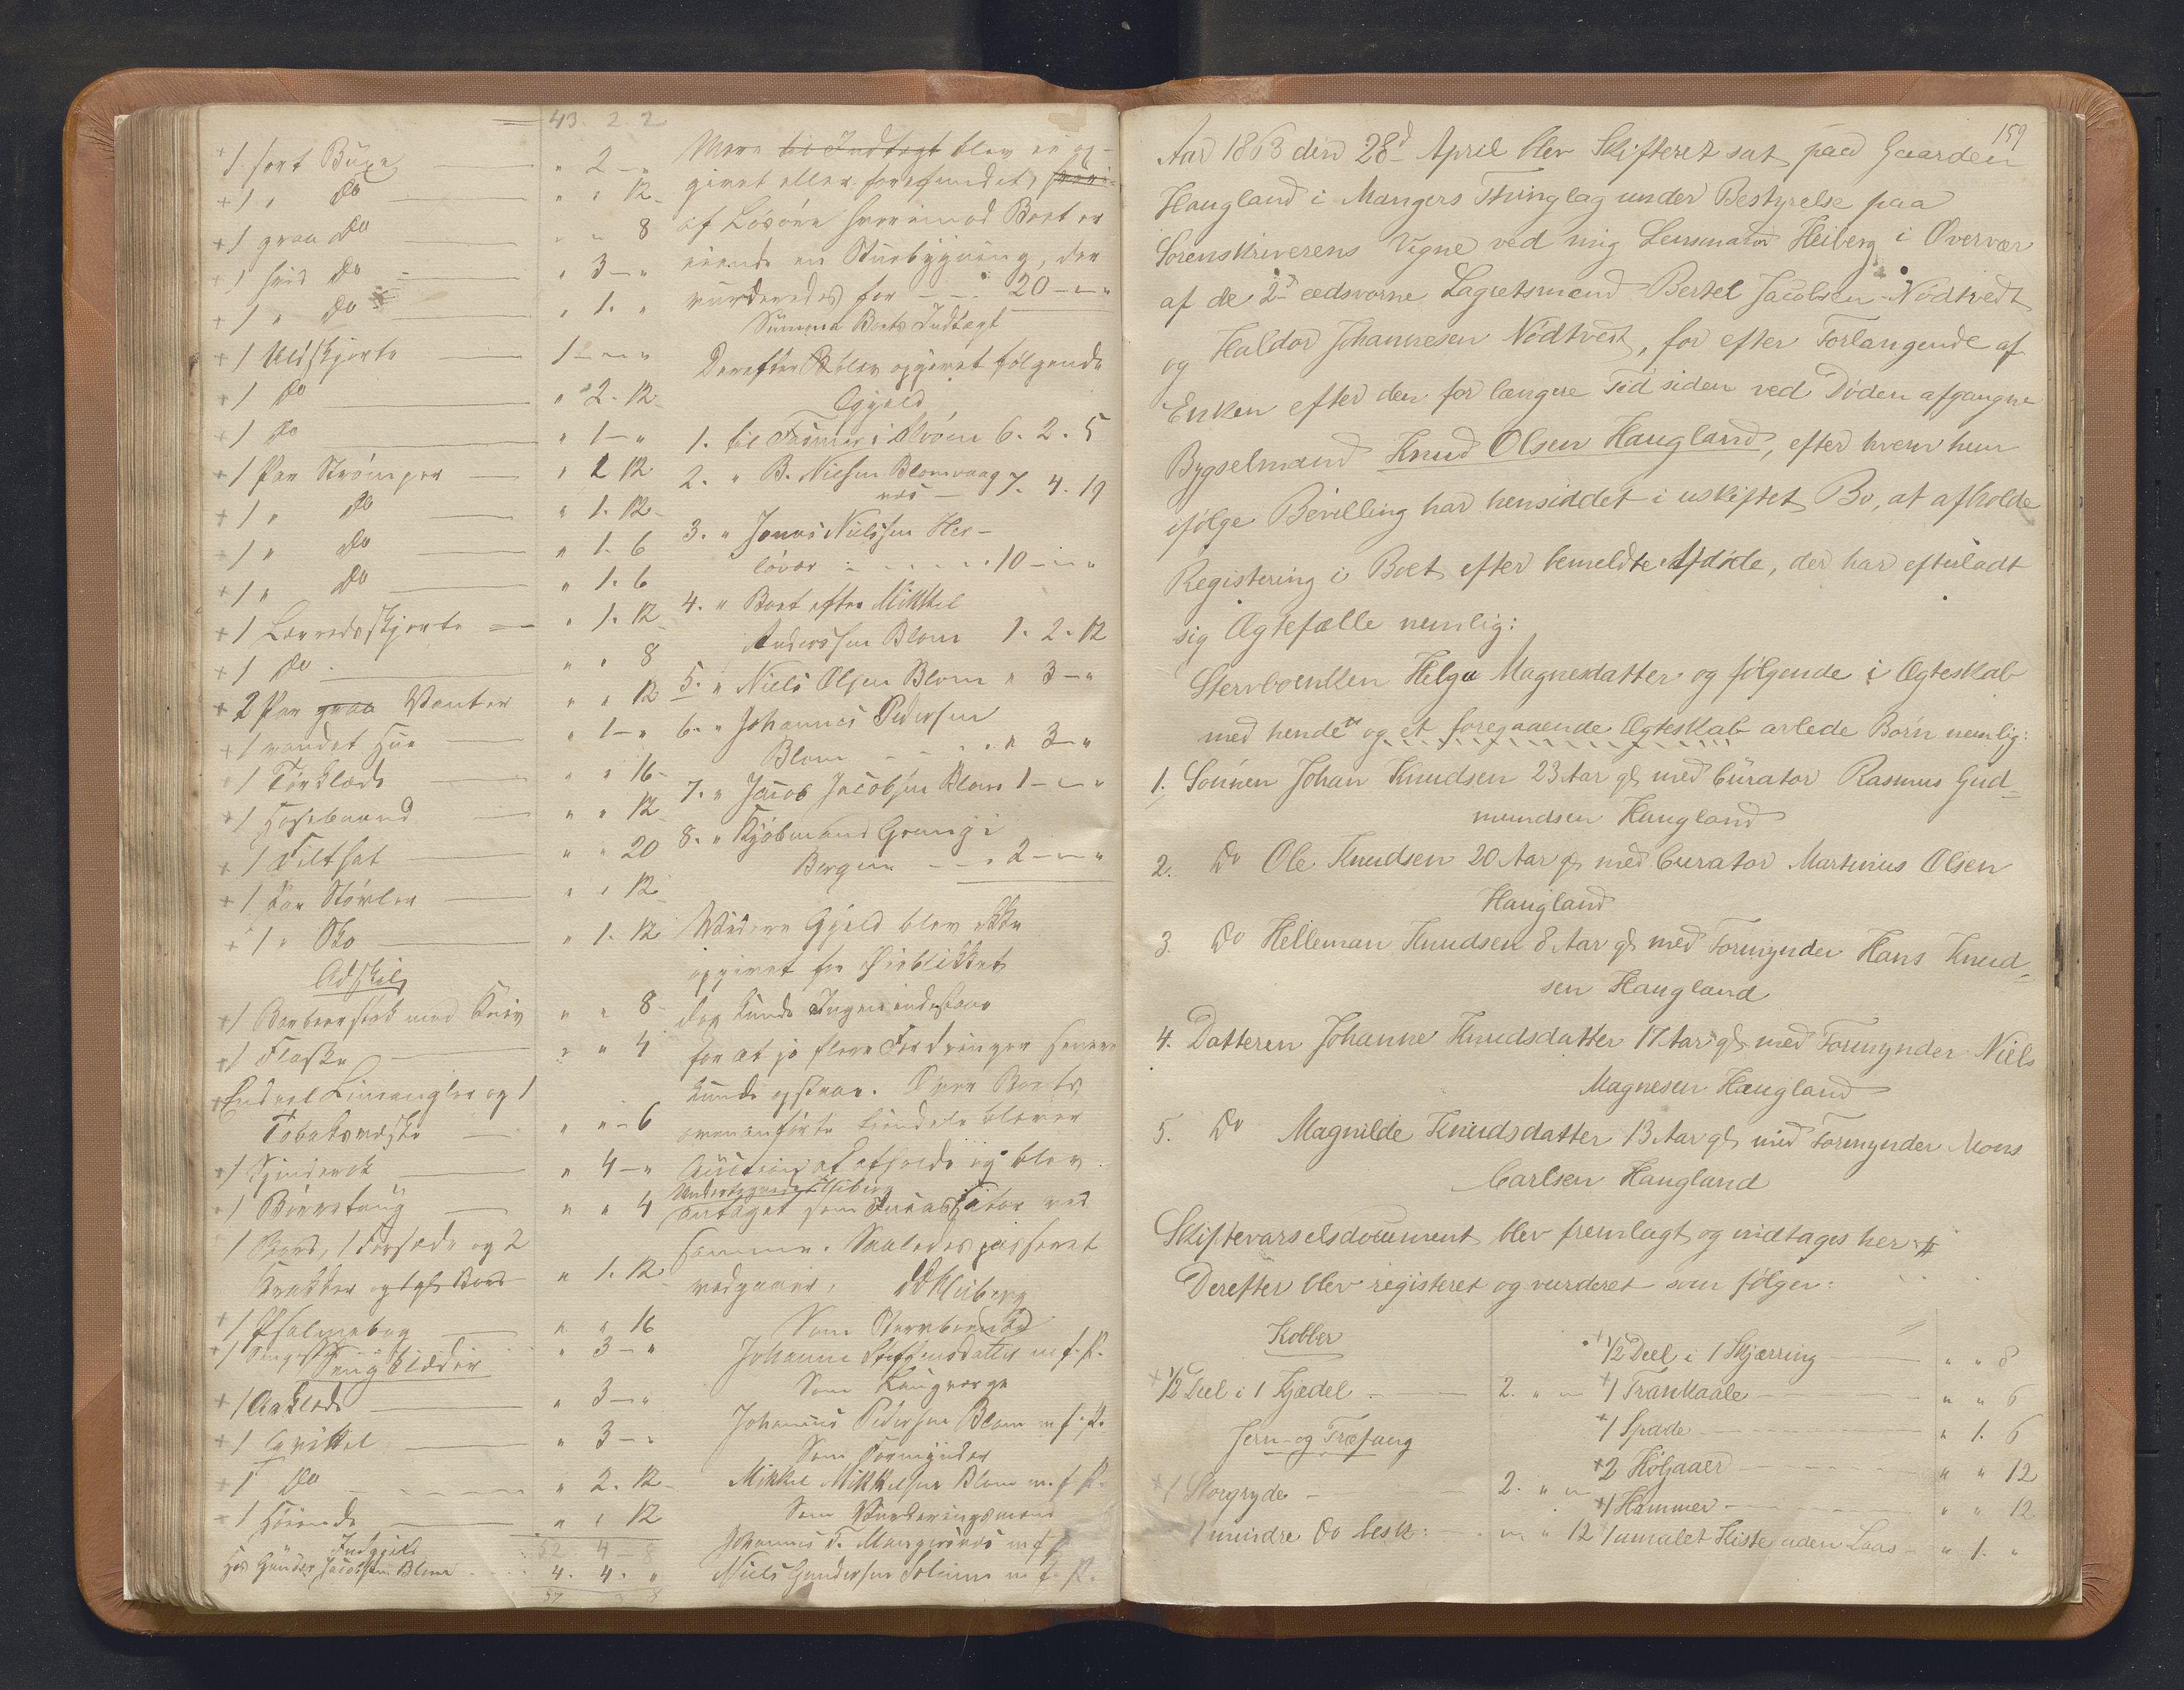 43. 2 2
+1 sort Buxe " 2 - "
+1 " Do " " 12
+1 graa Do " " 8
+1 hvid Do " 3 - "
+1 " Do " 1. "
+1 Uldskjorte 1 - " - "
+1 Do " 2. 12
+1 Do " 1 - "
+1 Par Strømper " 2 12
+1 " Do " 1. 12
+1 " Do " 1. 6
+1 " Do " 1. 6
+1 Lærredsskjorte " 1. 12
+1 Do " " 8
+2 Par graa Vanter " " 12
+1 randet Hue " 1 - "
+1 Tørklæde " " 16
+1 Hosebaand " " 12
+1 Filthat " " 20
+1 Par Støvler " " 12
+1 " Sko " 1. 12
Adskilg
+1 Barbeerstok med Kniv " " 8
+1 Flaske " " 4
+ Endeel Liinangler og 1
Tobaksæske " " 6
+1 Skindsæk " 4 - "
+1 Børretoug " " 4
1 Bord, 1 Forsæde og 2
Krakker og 1 gl Bord " 1. 12
+1 Psalmebog " " 16
+1 " 3 - "
Sengklæder
+1 Aaklæde " 3 - "
+1 Grikkel " 3 - "
+1 Do " 2. 12
1 Hoiende " " 12
52 4 - 8
Indgjeld
Hos Gunder Jacobsen Blom 4. 4. "
57 3 8
Mere til Indtægt blev ei op-
givet eller forefundet,
af Løsøre hvorimod Boet er
eiende en Stuebygning, der
vurderedes for 20 - " - "
Summa Boets Indtægt
Derefter blev opgivet følgende
Gjæld
1. til Fasmer i Alvøen 6. 2. 5
2. " B. Nielsen Blomvaag
næs 7. 4. 19
3. " Jonas Nielssen Her-
løvær 10 - " - "
4. " Boet efter Mikkel
Anderssen Blom 1. 2. 12
5. " Niels Olsen Blom " 3 - "
6. " Johannes Pedersen
Blom " 3 - "
7. " Jacob Jacobsen Blom 1 - " - "
8. " Kjøbmand Grung i
Bergen 2 - " - "
Videre Gjæld blev ikke
opgivet for Øieblikket
dog kunde Ingen indestaae
for at jo flere Fordringer senere
kunde opstaae. Over Boets
ovenanførte Eiendele bliver
Auction at afholde og blev
Undertegnede Heiberg
antaget som Incassator ved
samme. Saaledes passeret
vedgaaer, Heiberg
Som Stervboenke
Johanne Steffensdatter m. f. P.
Som Laugværge
Johannes Pedersen Blom m. f. P.
Som Formynder
Mikkel Mikkelsen Blom m. f. P.
Som Vurderingsmænd
Johannes T. Mangersnæs m f P
Niels Gundersen Solem m. f. P.
159
Aar 1863 den 28d April blev Skifteret sat paa Gaarden
Haugland i Mangers Thinglag under Bestyrelse paa
Sorenskriverens Vegne ved mig Lensmand Heiberg i Overvær
af de 2de ædsvorne Lagretsmænd Bertel Jacobsen Nødtvedt
og Haldor Johannesen Nødtvedt, for efter Forlangende af
Enken efter den for længere Tid siden ved Døden afgangne
Bygselmand Knud Olsen Haugland, efter hvem hun
ifølge Bevilling har hensiddet i uskiftet Bo, at afholde
Registering i Boet efter bemeldte Afdøde, der har efterladt
sig Ægtefælle nemlig:
Stervboenken Helga Magnesdatter og følgende i Ægteskab
med hende og et foregaaende Ægteskab avlede Børn nemlig:
1. Sønnen Johan Knudsen 23 Aar gl med Curator Rasmus Gud-
mundsen Haugland
2. Do Ole Knudsen 20 Aar gl med Curator Martinus Olsen
Haugland
3. Do Helleman Knudsen 8 Aar gl med Formynder Hans Knud-
sen Haugland
4. Datteren Johanne Knudsdatter 17 Aar gl med Formynder Niels
Magnesen Haugland
5. Do Magnilde Knudsdatter 13 Aar gl med Formynder Mons
Carlsen Haugland
Skiftevarselsdocument blev fremlagt og indtages her #
Derefter blev registeret og vurderet som følger:
Kobber
+ 1/2 Deel i 1 Kjædel 2. " "
Jern- og Træfang
+1 Storgryde 2. " "
1 mindre Do besk: " " 12
+ 1/2 Deel i 1 Skjærring " " 8
+1 Trankaale " " 6
+1 Spade " 1. 6
+2 Høljaaer " " 12
+1 Hammer " " 12
1 umalet Kiste uden Laas " 1. "